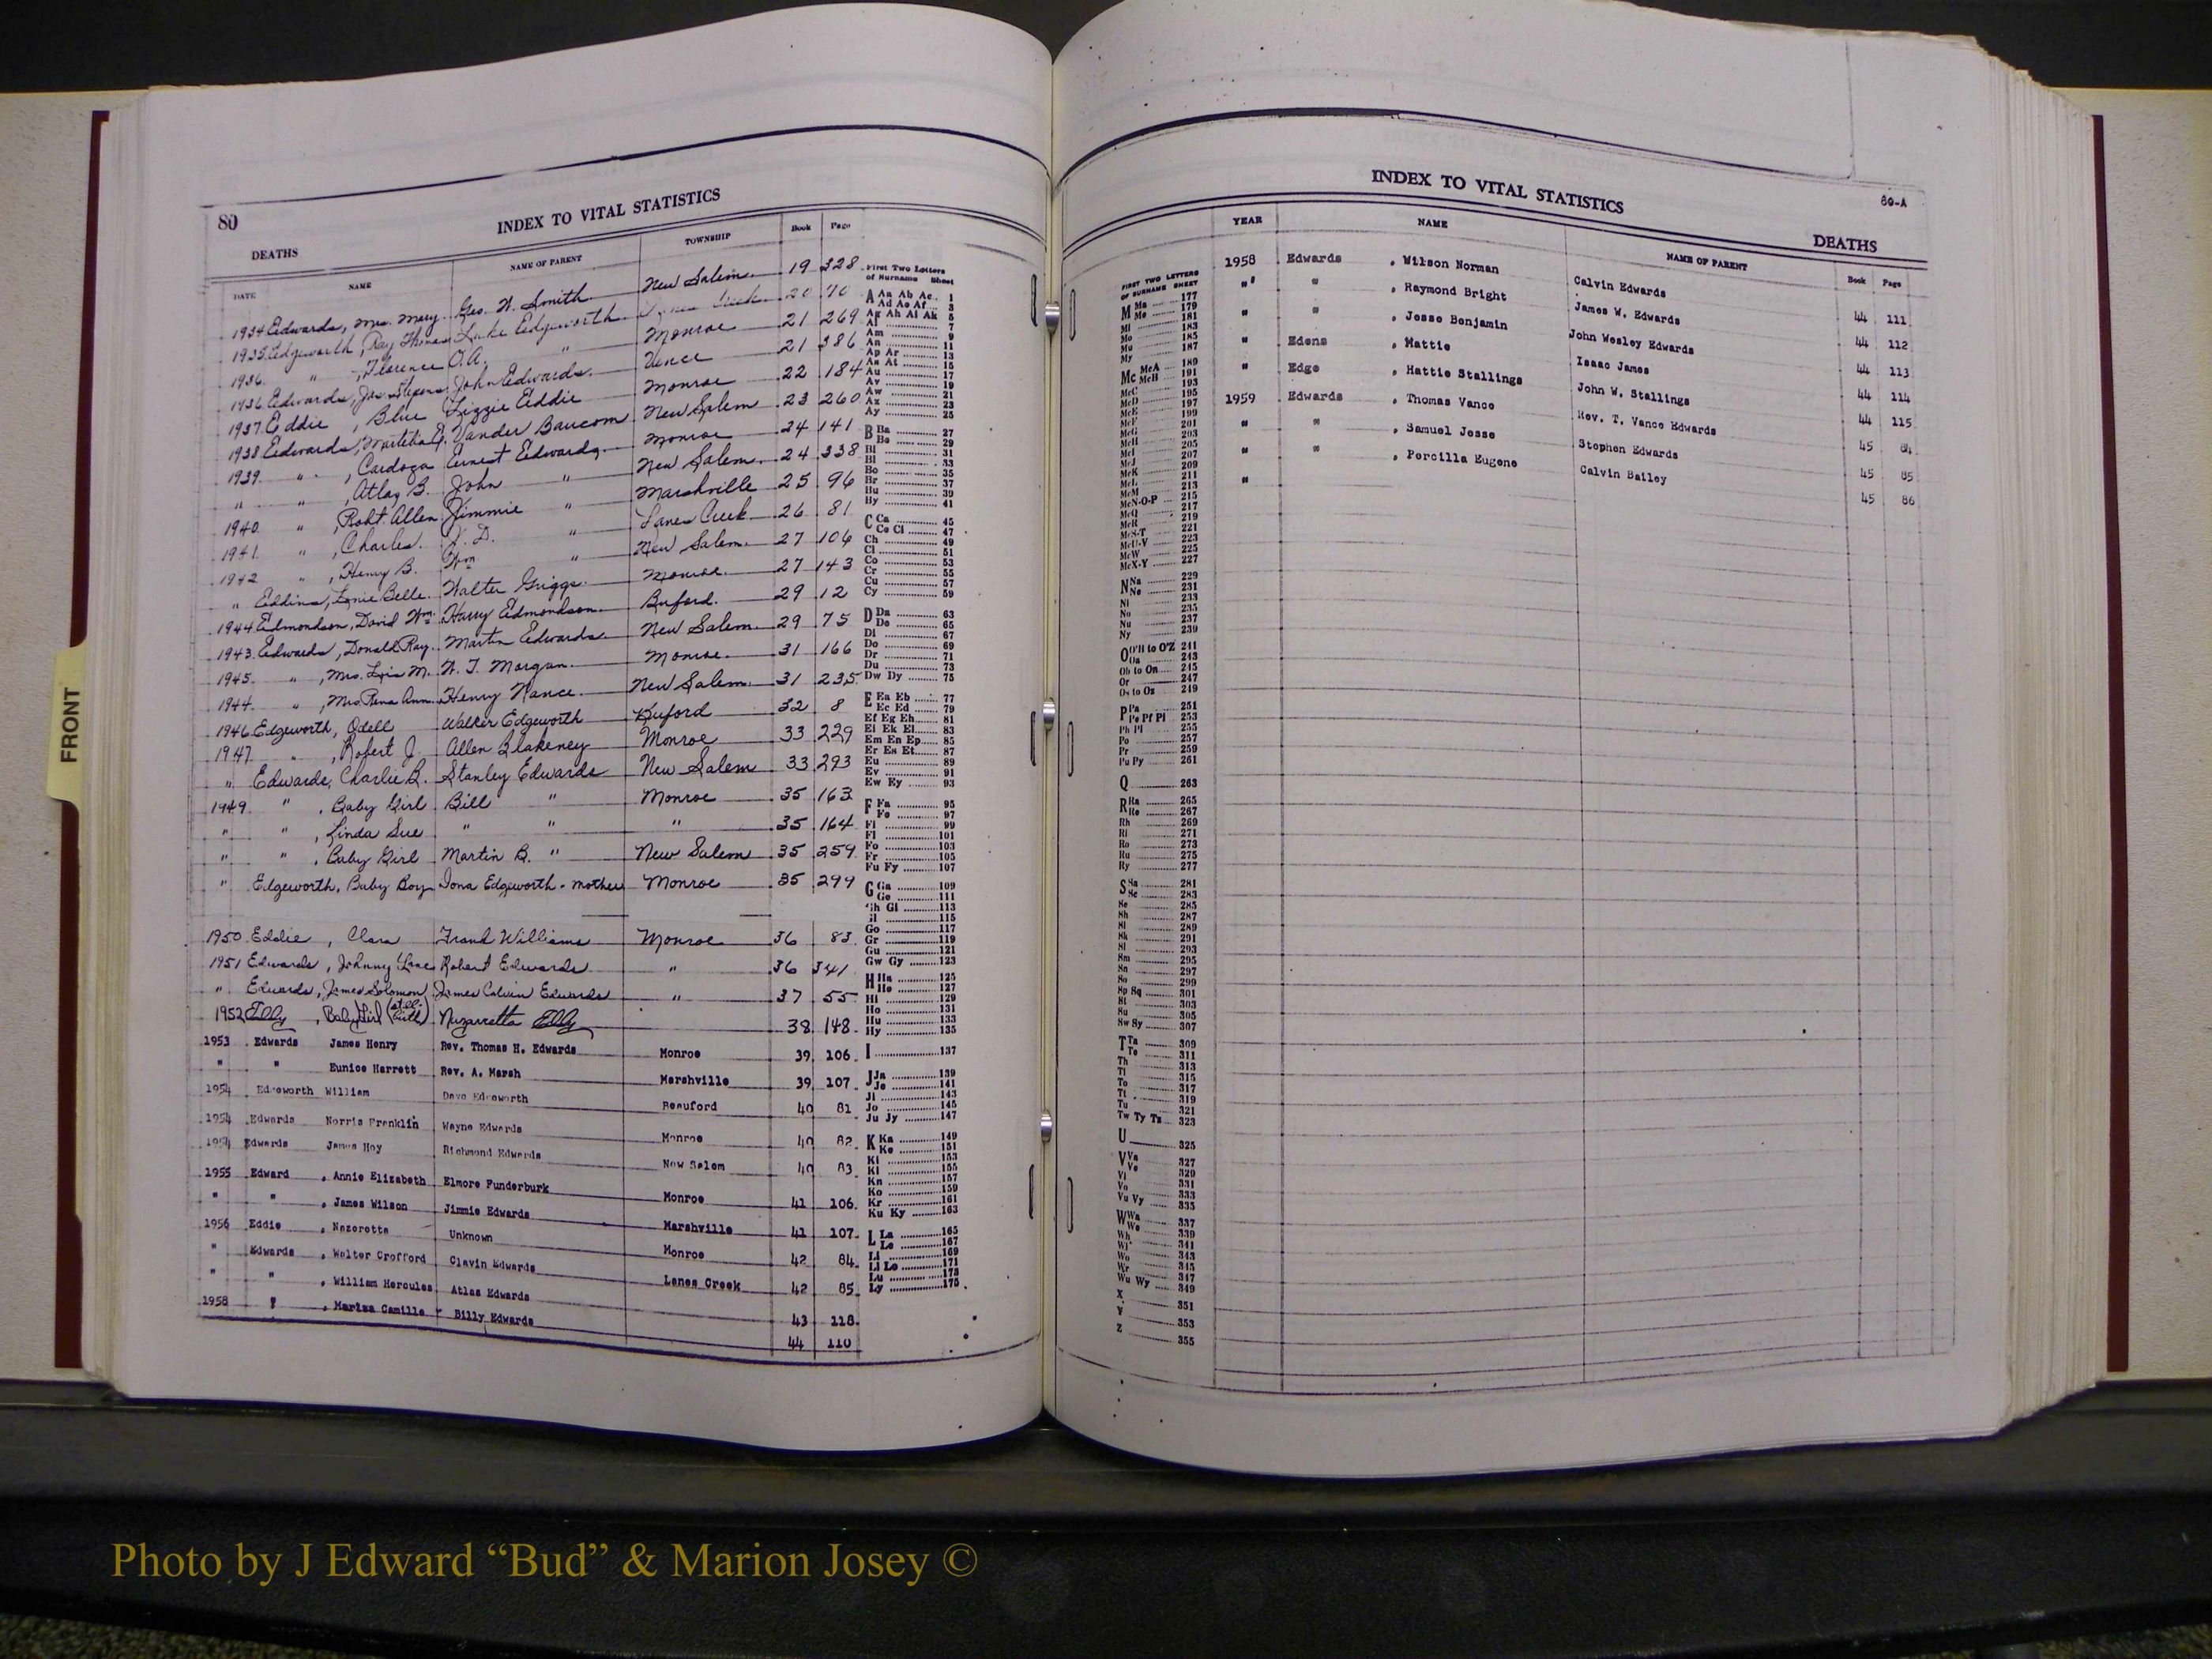 80
INDEX TO VITAL STATISTICS
DEATHS
DATE NAME NAME OF PARENT TOWNSHIP Book Page
1934 Edwards, Mrs. Mary Geo. W. Smith New Salem 19 328
1935 Edgeworth, Ray Thomas Luke Edgeworth 20 70
1936 " , Florence O.A. " Monroe 21 269
1936 Edwards, John Edwards Vance 21 386
1937 Eddie, Blue Lizzie Eddie Monroe 22 184
1938 Edwards, Vander Baucom New Salem 23 260
1939 " , Cardoza Ernest Edwards Monroe 24 141
" " , Atlas B. John " New Salem 24 338
1940 " , Robt. Allen Jimmie " Marshville 25 96
1941 " , Charles. D. " Lanes Creek 26 81
1942 " , Henry B. Wm " New Salem 27 106
" Eddins, Belle Walter Griggs Monroe 27 143
1944 Edmondson, David Wm. Harry Edmondson Buford 29 12
1943 Edwards, Donald Ray Martin Edwards New Salem 29 75
1945 " , Mrs. M. Morgan Monroe 31 166
1944 " , Mrs. Rena Ann Henry Nance New Salem 31 235
1946 Edgeworth, Odell Walker Edgeworth Buford 32 8
1947 " , Robert J. Allen Blakeney Monroe 33 229
" Edwards, Charlie R. Stanley Edwards New Salem 33 293
1949 " , Baby Girl Bill " Monroe 35 163
" " , Linda Sue " " " 35 164
" " , Baby Girl Martin B. " New Salem 35 259
" Edgeworth, Baby Boy Iona Edgeworth - mother Monroe 35 299
1950 Eddie, Clara Frank Williams Monroe 36 83
1951 Edwards, Johnny Robert Edwards " 36 341
" Edwards, James Solomon James Calvin Edwards " 37 55
1952 , Baby Girl (still birth) Nazarretta 38 148
1953 Edwards James Henry Rev. Thomas H. Edwards Monroe 39 106
" " Eunice Harrett Rev. A. Marsh Marshville 39 107
1954 Edgeworth William Dave Edgeworth Beauford 40 81
1954 Edwards Norris Franklin Wayne Edwards Monroe 40 82
1954 Edwards James Hoy Richmond Edwards New Salem 40 83
1955 Edward , Annie Elizabeth Elmore Funderburk Monroe 41 106
" " , James Wilson Jimmie Edwards Marshville 41 107
1956 Eddie , Nazorotta Unknown Monroe 42 84
" Edwards , Walter Crofford Clavin Edwards Lanes Creek 42 85
" " , William Hercules Atlas Edwards 43 118
1958 " , Mariza Camille Billy Edwards 44 110
First Two Letters
of Surname Sheet
A Aa Ab Ac 1
Ad Ae Af 3
Ag Ah Ai Ak 5
Al 7
Am 9
An 11
Ap Ar 13
As At 15
Au 17
Av 19
Aw 21
Ax 23
Ay 25
B Ba 27
Be 29
Bi 31
Bl 33
Bo 35
Br 37
Bu 39
By 41
C Ca 45
Ce Ci 47
Ch 49
Cl 51
Co 53
Cr 55
Cu 57
Cy 59
D Da 63
De 65
Di 67
Do 69
Dr 71
Du 73
Dw Dy 75
E Ea Eb 77
Ec Ed 79
Ef Eg Eh 81
Ei Ek El 83
Em En Ep 85
Er Es Et 87
Eu 89
Ev 91
Ew Ey 93
F Fa 95
Fe 97
Fi 99
Fl 101
Fo 103
Fr 105
Fu Fy 107
G Ga 109
Ge 111
Gh Gi 113
Gl 115
Go 117
Gr 119
Gu 121
Gw Gy 123
H Ha 125
He 127
Hi 129
Ho 131
Hu 133
Hy 135
I 137
J Ja 139
Je 141
Ji 143
Jo 145
Ju Jy 147
K Ka 149
Ke 151
Ki 153
Kl 155
Kn 157
Ko 159
Kr 161
Ku Ky 163
L La 165
Le 167
Li 169
Ll Lo 171
Lu 173
Ly 175
INDEX TO VITAL STATISTICS
80-A
DEATHS
YEAR NAME NAME OF PARENT Book Page
1958 Edwards , Wilson Norman Calvin Edwards 44 111
" " , Raymond Bright James W. Edwards 44 112
" " , Jesse Benjamin John Wesley Edwards 44 113
" Edens , Mattie Isaac James 44 114
" Edge , Hattie Stallings John W. Stallings 44 115
1959 Edwards , Thomas Vance Rev. T. Vance Edwards 45 84
" " , Samuel Jesse Stephen Edwards 45 85
" , Percilla Eugene Calvin Bailey 45 86
FIRST TWO LETTERS
OF SURNAME SHEET
M Ma 177
Me 179
Mi 181
Mo 183
Mu 185
My 187
Mc McA 189
McB 191
McC 193
McD 195
McE 197
McF 199
McG 201
McH 203
McI 205
McJ 207
McK 209
McL 211
McM 213
McN-O-P 215
McQ 217
McR 219
McS-T 221
McU-V 223
McW 225
McX-Y 227
N Na 229
Ne 231
Ni 233
No 235
Nu 237
Ny 239
O O'B to O'Z 241
Oa 243
Ob to On 245
Or 247
Os to Oz 249
P Pa 251
Pe Pf Pi 253
Ph Pl 255
Po 257
Pr 259
Pu Py 261
Q 263
R Ra 265
Re 267
Rh 269
Ri 271
Ro 273
Ru 275
Ry 277
S Sa 281
Sc 283
Se 285
Sh 287
Si 289
Sk 291
Sl 293
Sm 295
Sn 297
So 299
Sp Sq 301
St 303
Su 305
Sw Sy 307
T Ta 309
Te 311
Th 313
Ti 315
To 317
Tr 319
Tu 321
Tw Ty Tz 323
U 325
V Va 327
Ve 329
Vi 331
Vo 333
Vu Vy 335
W Wa 337
We 339
Wh 341
Wi 343
Wo 345
Wr 347
Wu Wy 349
X 351
Y 353
Z 355
FRONT
Photo by J Edward “Bud” & Marion Josey ©